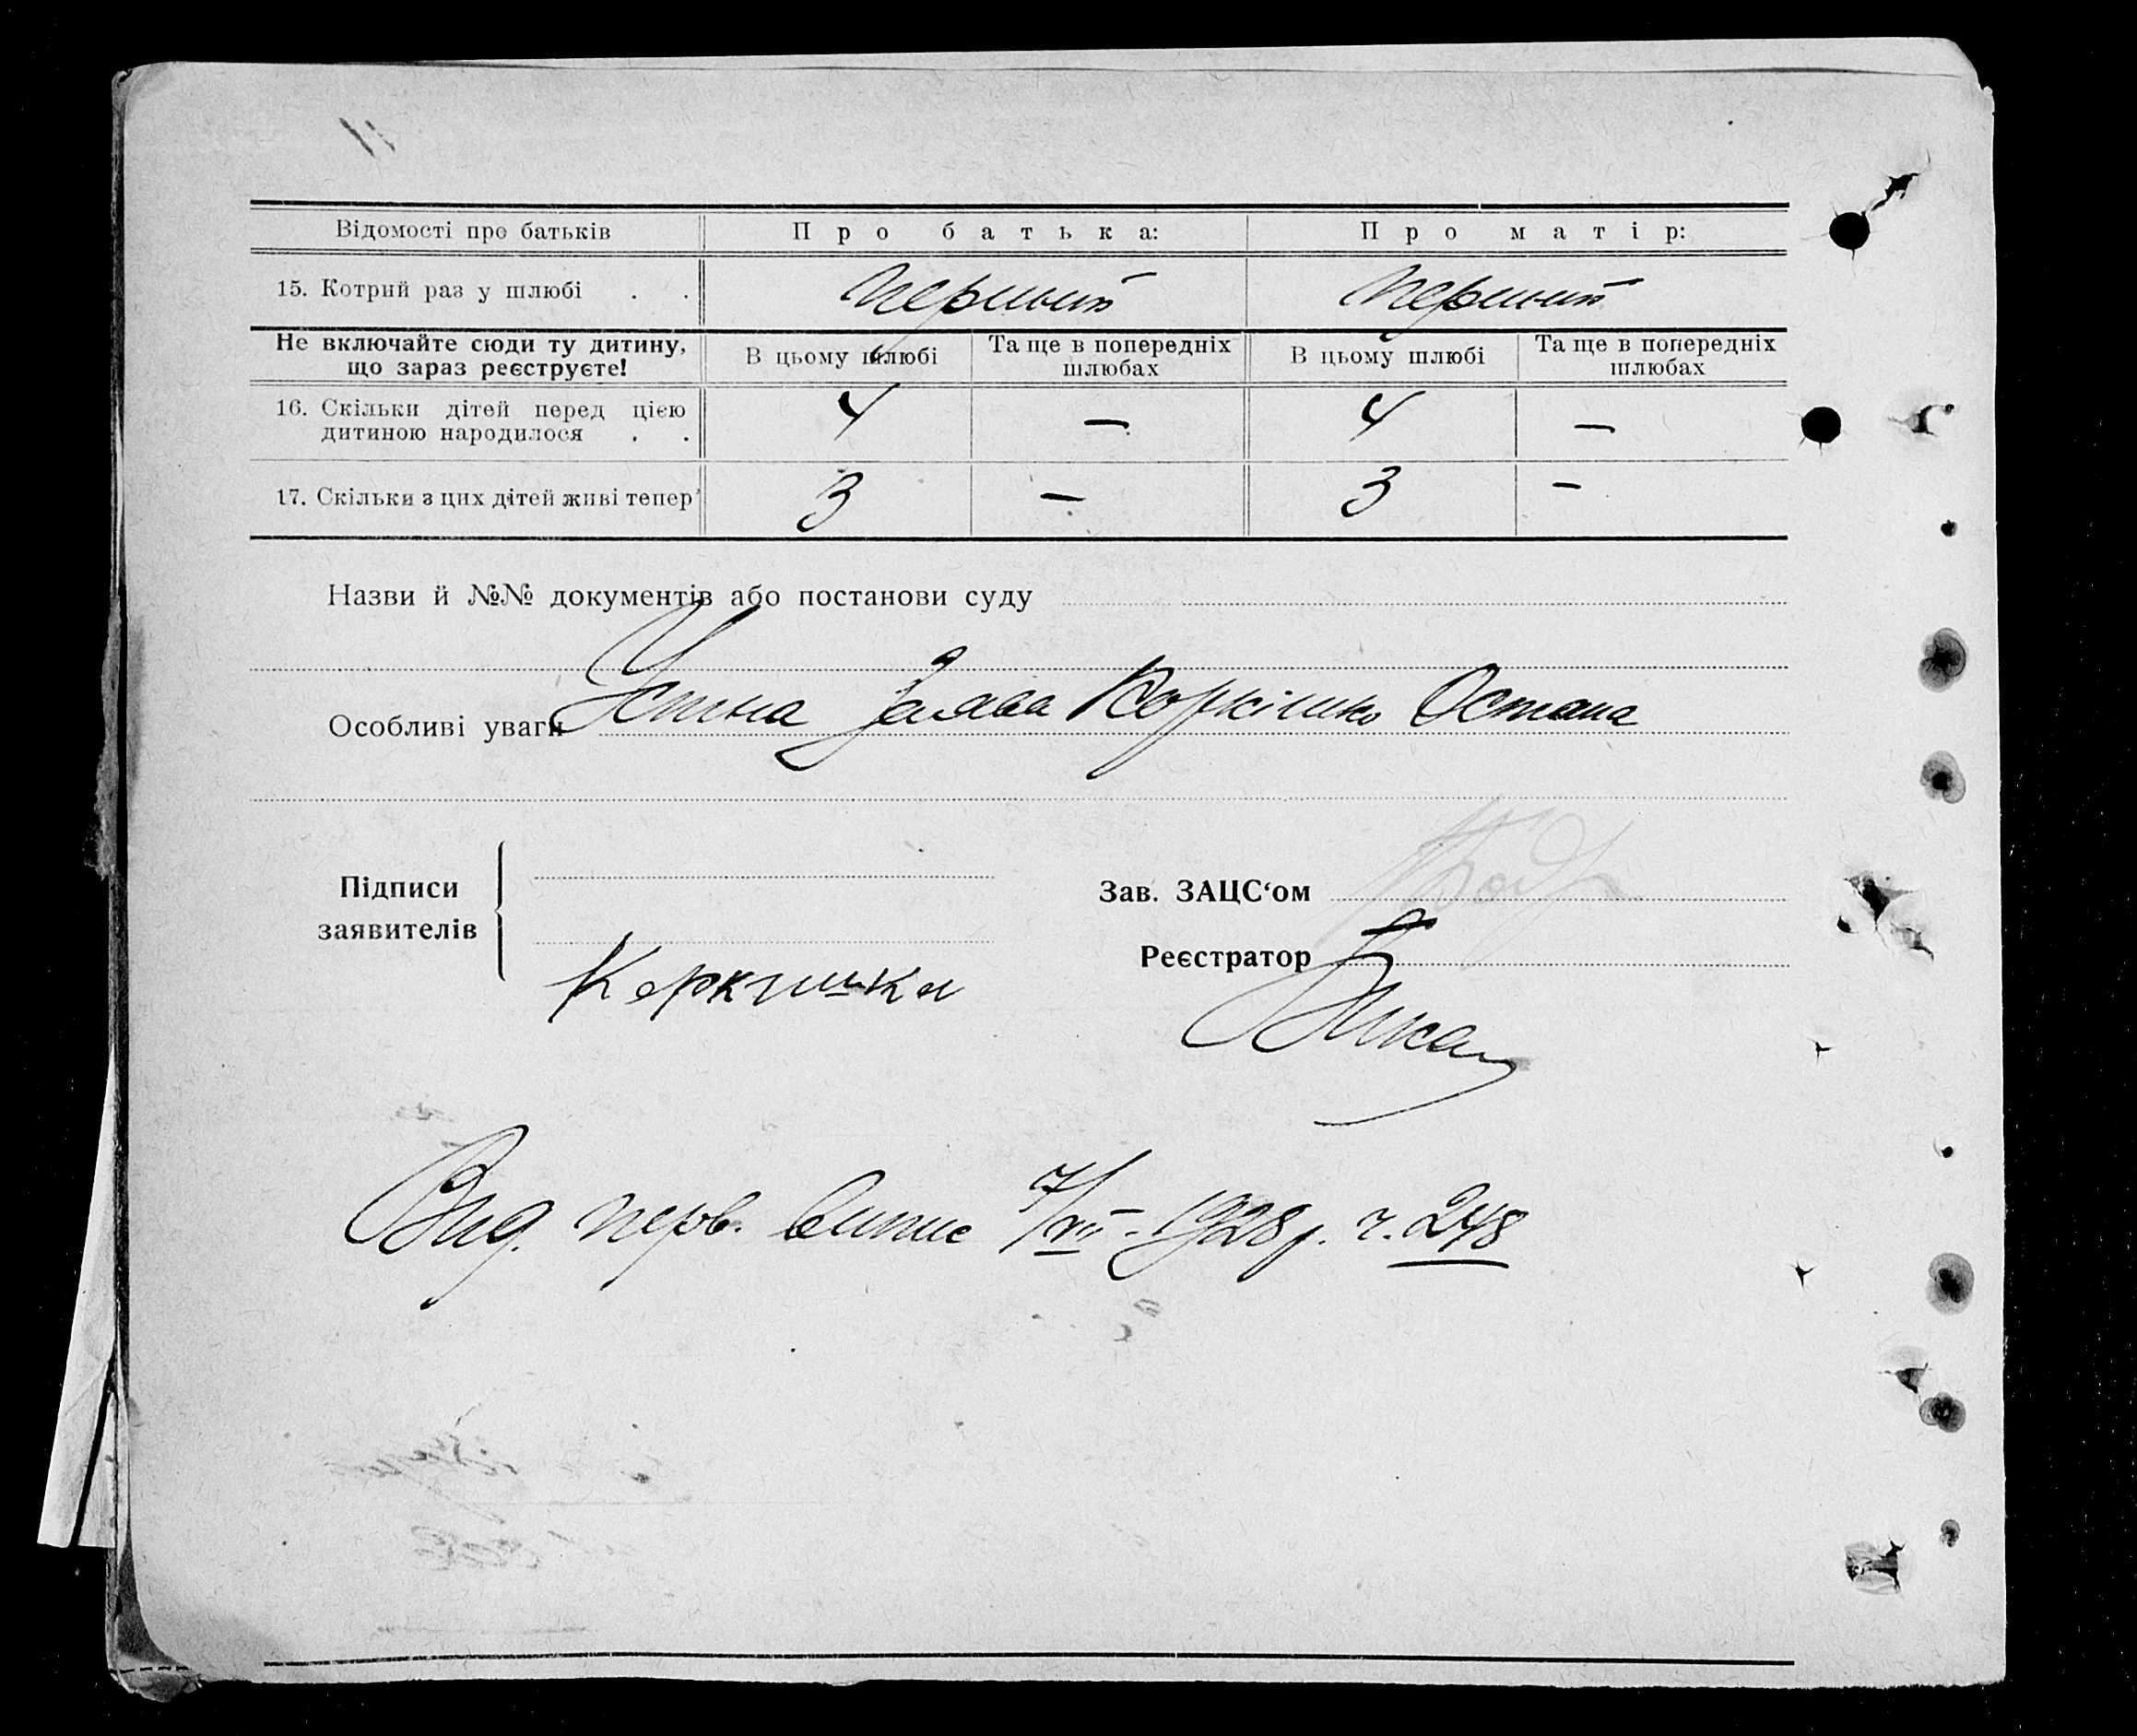 Відомості про батьків Про батька: Про матір:
15. Котрий раз у шлюбі . . перший перший
Не включайте сюди ту дитину, що зараз реєструєте! В цьому шлюбі Та ще в попередніх шлюбах В цьому шлюбі Та ще в попередніх шлюбах
16. Скільки дітей перед цією дитиною народилося . . 4 — 4 —
17. Скільки з цих дітей живі тепер 3 — 3 —
Назви й №№ документів або постанови суду
Особливі уваги Устна заява Коркішко Остапа
Підписи заявителів
Зав. ЗАЦС‘ом
Реєстратор
Коркишко
Вид. перв. випис 7/VII - 1928 р. ч. 248